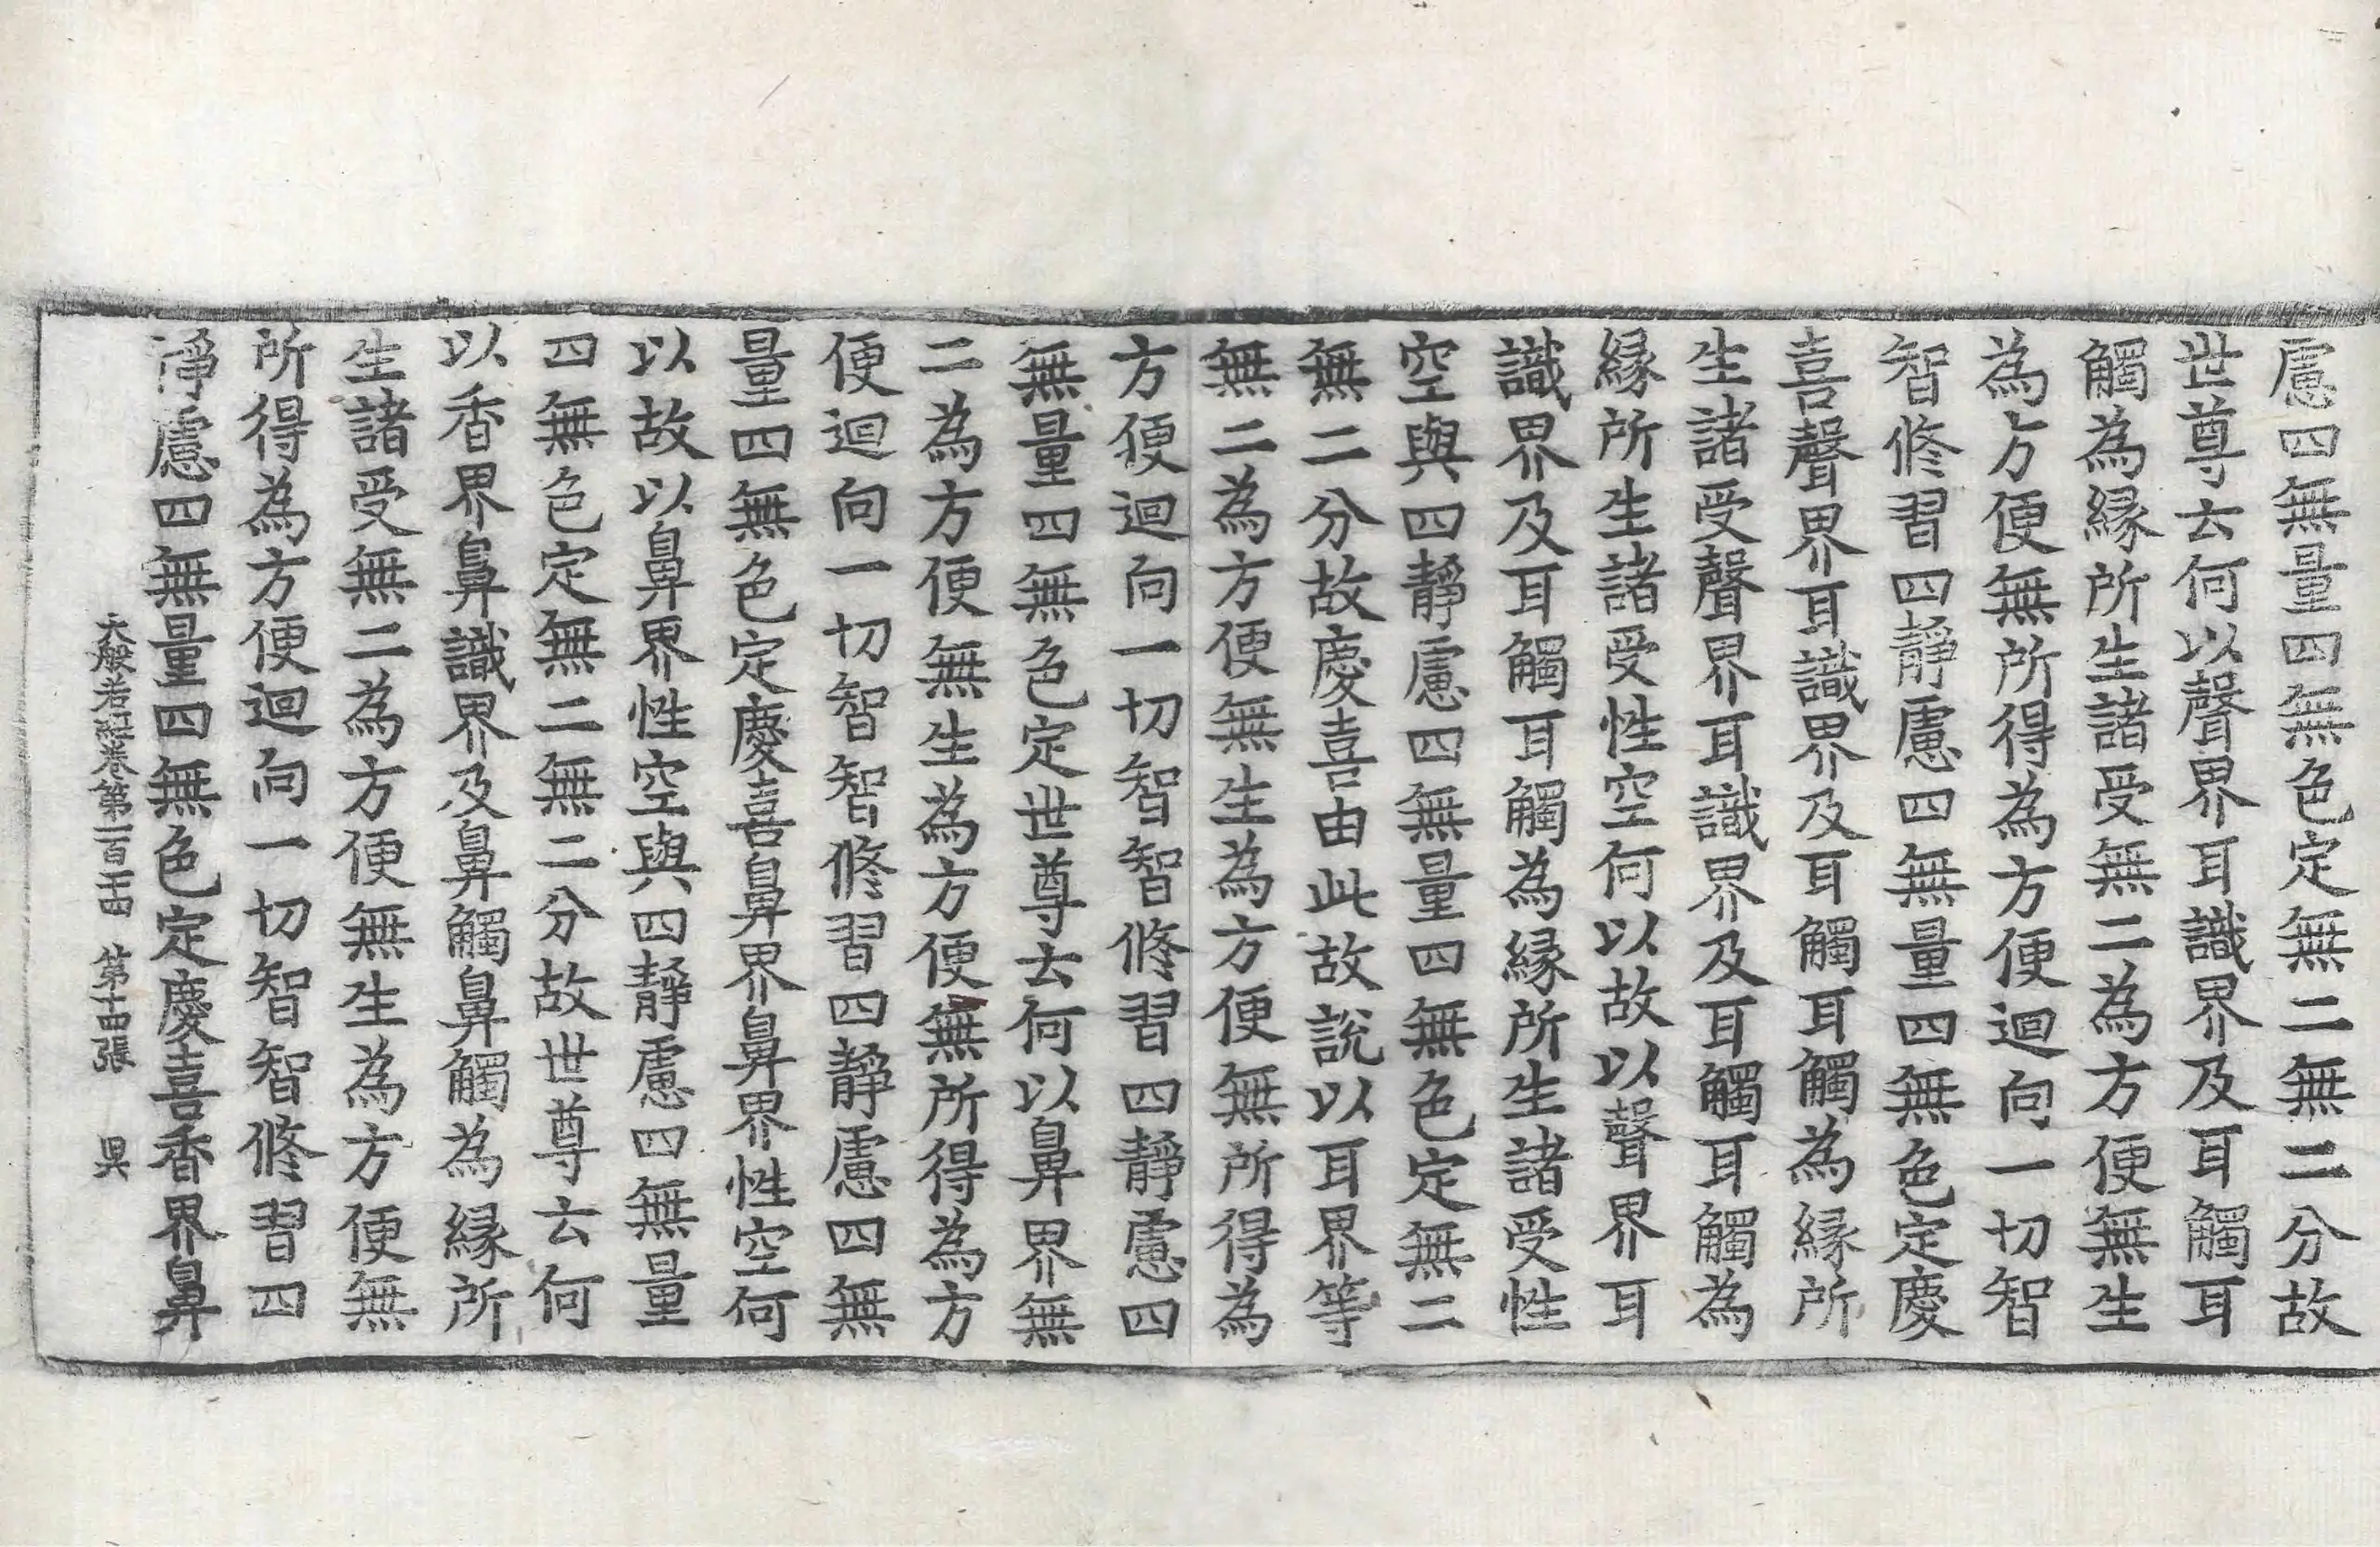 慮四無量四無色定無二無二分故
世尊云何以聲界耳識界及耳觸耳
觸為緣所生諸受無二為方便無生
為方便無所得為方便迴向一切智
智修習四靜慮四無量四無色定慶
喜聲界耳識界及耳觸耳觸為緣所
生諸受聲界耳識界及耳觸耳觸為
緣所生諸受性空何以故以聲界耳
識界及耳觸耳觸為緣所生諸受性
空與四靜慮四無量四無色定無二
無二分故慶喜由此故說以耳界等
無二為方便無生為方便無所得為
方便迴向一切智智修習四靜慮四
無量四無色定世尊云何以鼻界無
二為方便無生為方便無所得為方
便迴向一切智智修習四靜慮四無
量四無色定慶喜鼻界鼻界性空何
以故以鼻界性空與四靜慮四無量
四無色定無二無二分故世尊云何
以香界鼻識界及鼻觸鼻觸為緣所
生諸受無二為方便無生為方便無
所得為方便迴向一切智智修習四
淨慮四無量四無色定慶喜香界鼻
大般若經卷第一百十四 第十四張 昃